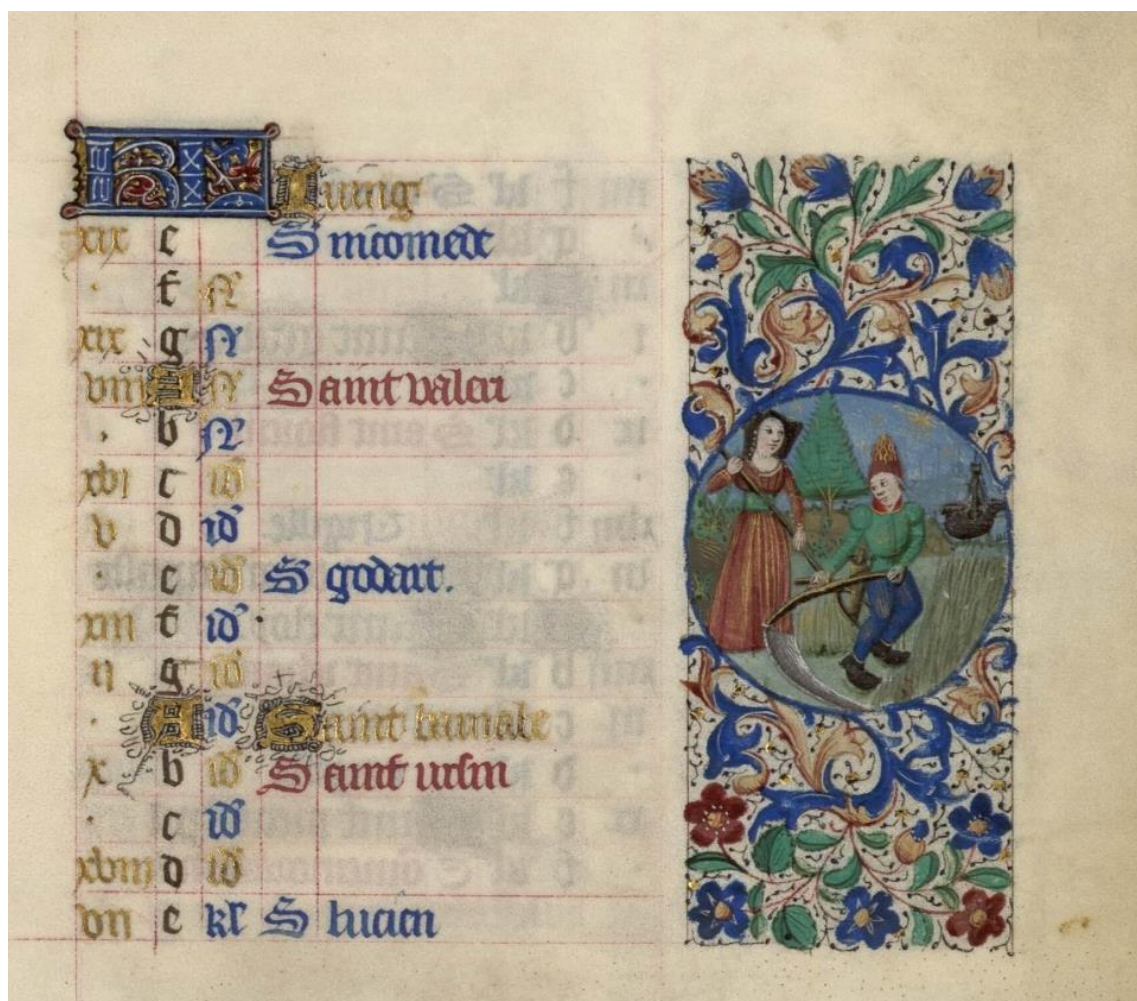 KL Iuing
xix e S nicomede
. f N
xix g N
viii A N Saint valeri
. b N
xvi c id
v d id
. e id S godart.
xiii f id
ii g id
. A id Saint barnabe
x b id Saint ursin
. c id
xviii d id
vii e kl S lucien